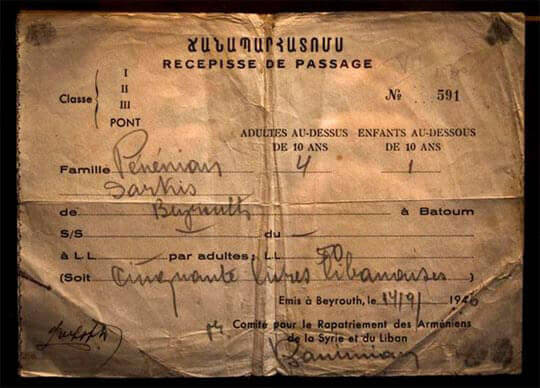 ՃԱՆԱՊԱՐՀԱՏՈՄՍ
RECEPISSE DE PASSAGE
Classe
I
II
III
PONT
№ 591
ADULTES AU-DESSUS DE 10 ANS
ENFANTS AU-DESSOUS DE 10 ANS
Famille Pénénian 4 1
Sarkis
de Beyrouth à Batoum
S/S — du —
à L L par adultes; LL 50
(Soit Cinquante livres libanaises)
Emis à Beyrouth, le 14/9/ 1946
Comité pour le Rapatriement des Arméniens
de la Syrie et du Liban